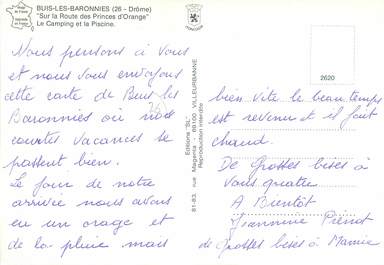 BUIS-LES-BARONNIES (26 - Drôme)
"Sur la Route des Princes d'Orange"
Le Camping et la Piscine.
Nous pensons à vous
et nous vous envoyons
cette carte de Buis les
Baronnies (26) où nos
courtes vacances se
passent bien.
Le jour de notre
arrivée nous avons
eu un orage et
de la pluie mais
Editions "SL"
81-83, rue Magenda - 69100 VILLEURBANNE
Reproduction interdite
2620
bien vite le beau temps
est revenu et il fait
chaud.
De Grosses bises à
vous quatre
A Bientôt
Jeannine
de Grosses bises à Mamie